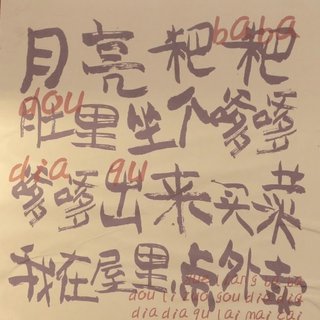 baba
月亮粑粑
dou
肚里坐个嗲嗲
dia qu
嗲嗲出来买菜
我在屋里点外卖
dou li zuo gou dia dia
dia dia qu lai mai cai